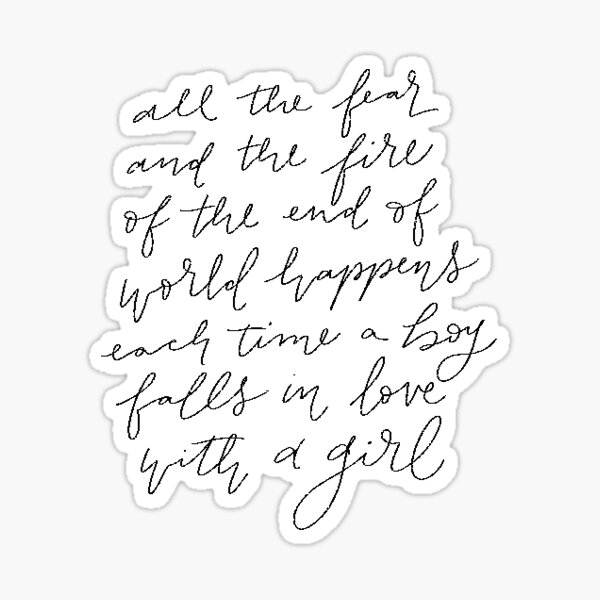 all the fear
and the fire
of the end of
world happens
each time a boy
falls in love
with a girl